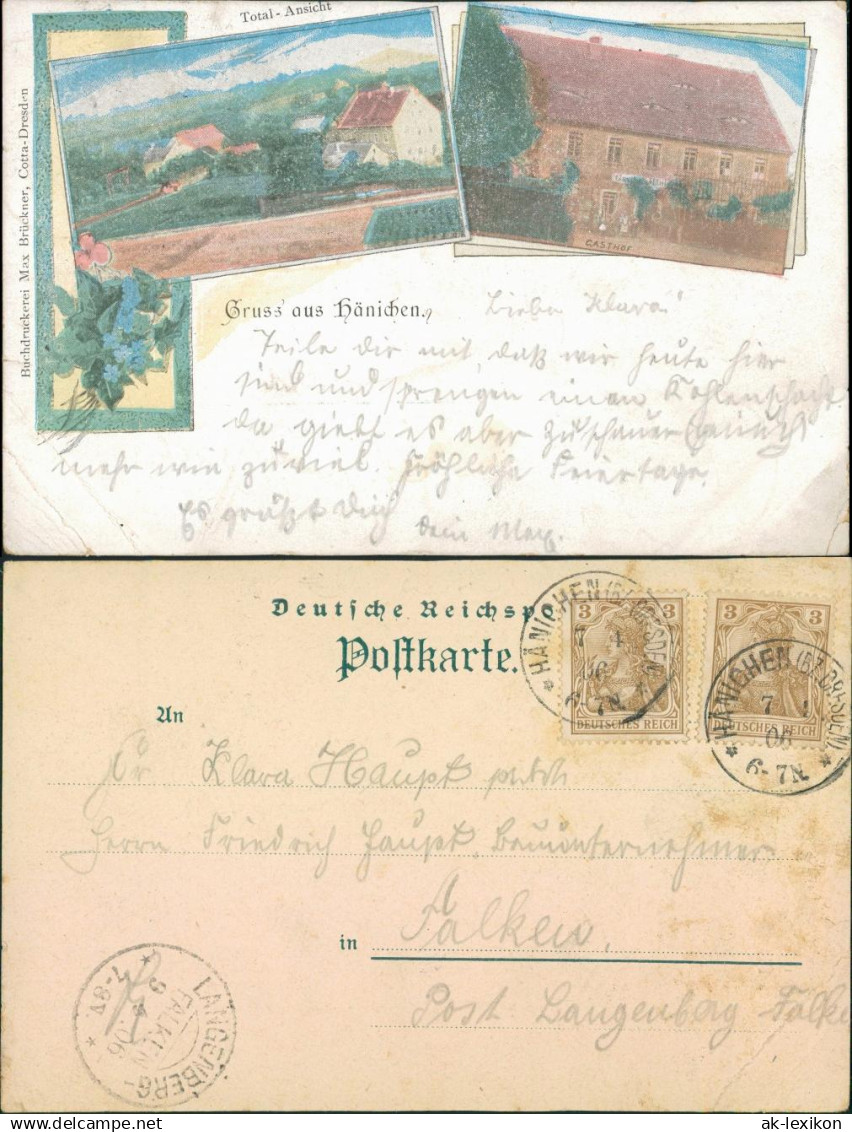 Total-Ansicht
Buchdruckerei Max Brückner, Cotta-Dresden
GASTHOF
Gruss aus Hänichen.
Liebe Klara!
Teile dir mit daß wir heute hier
sind und sprengen einen Kohlenschacht
da giebt es aber Zuschauer
mehr wie zuviel. Fröhliche Feiertage.
Es grüßt Dich
dein Max.
Deutsche Reichspo
Postkarte.
HÄNICHEN (BZ. DRESDEN)
7 4
06
6-7N.
3 3
DEUTSCHES REICH
3 3
DEUTSCHES REICH
HÄNICHEN (BZ. DRESDEN)
7
06
6-7N.
An
Klara Haupt
Herrn Friedrich Haupt, Bauunternehmer
in Falken.
Post Langenberg Falke
LANGENBERG-
FALKEN
9 4 06
7-8V
ak-lexikon